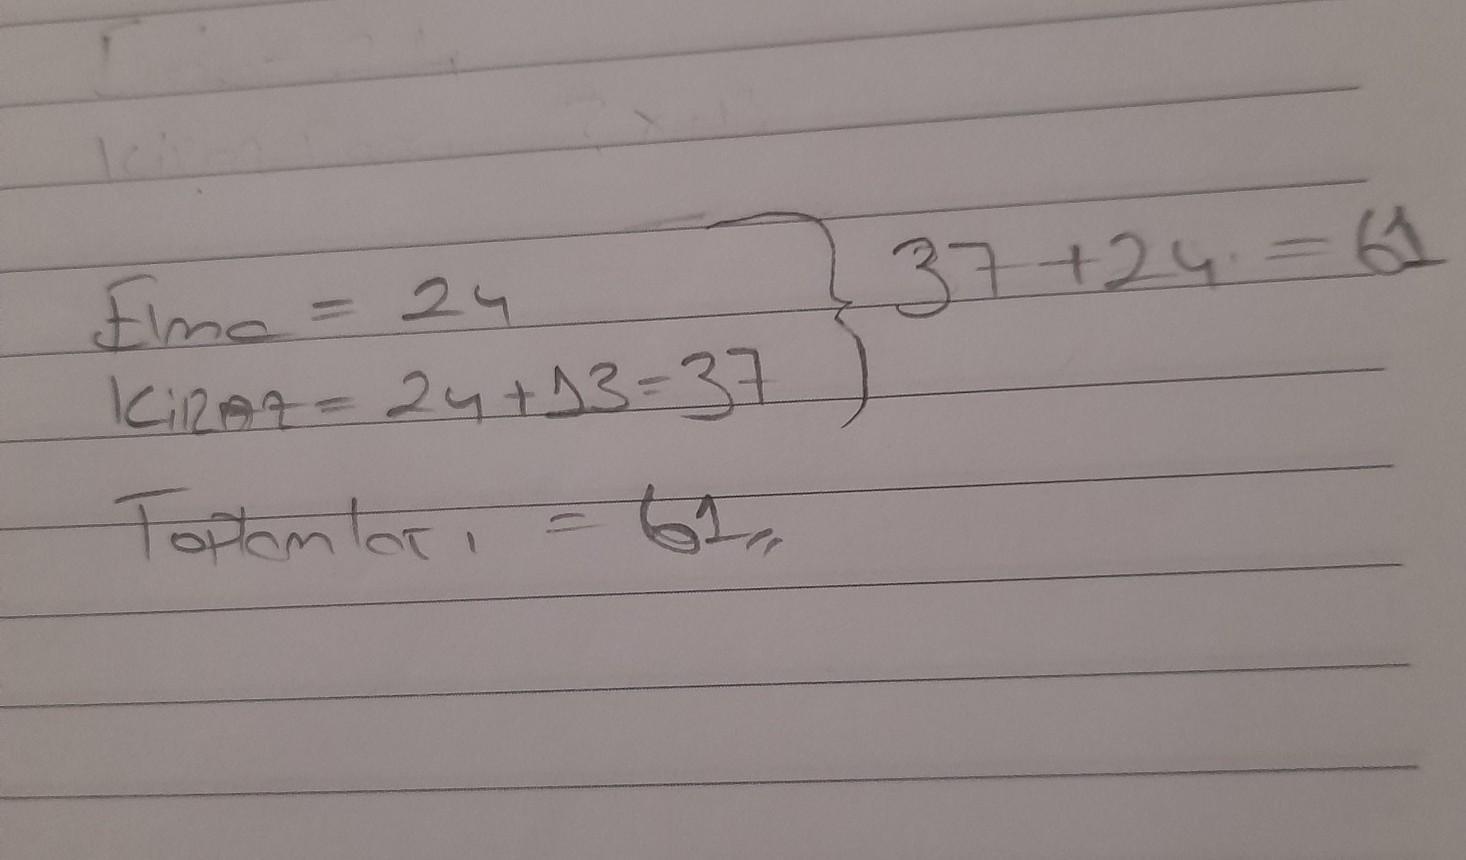 Elma = 24
KiRAZ = 24+13=37
37+24 = 61
Toplamları = 61,,